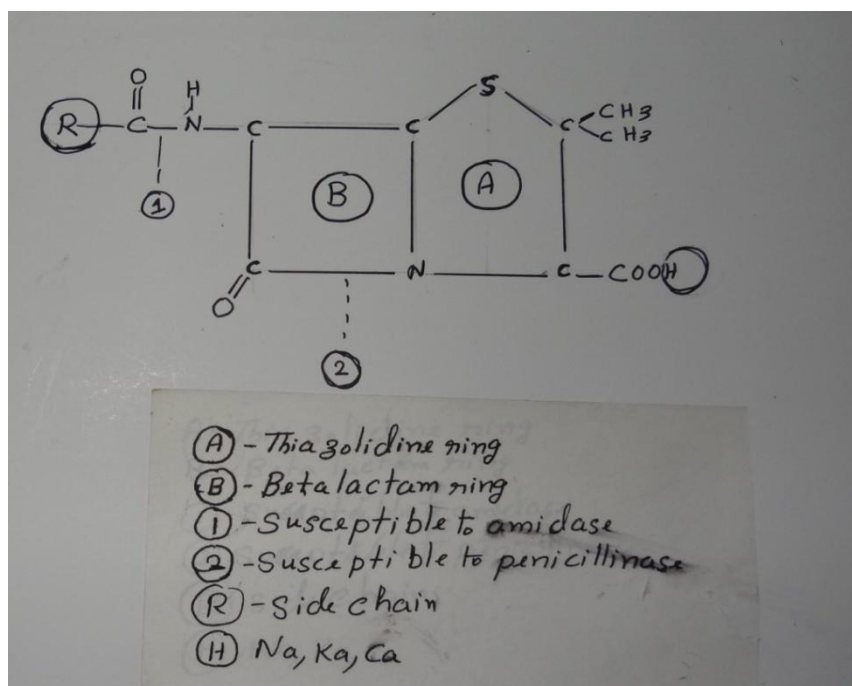 O
H
S
R C N C C C CH3
CH3
1
B
A
C N C COOH
O
2
A - Thiazolidine ring
B - Betalactam ring
1 - Susceptible to amidase
2 - Susceptible to penicillinase
R - Side chain
H Na, Ka, Ca